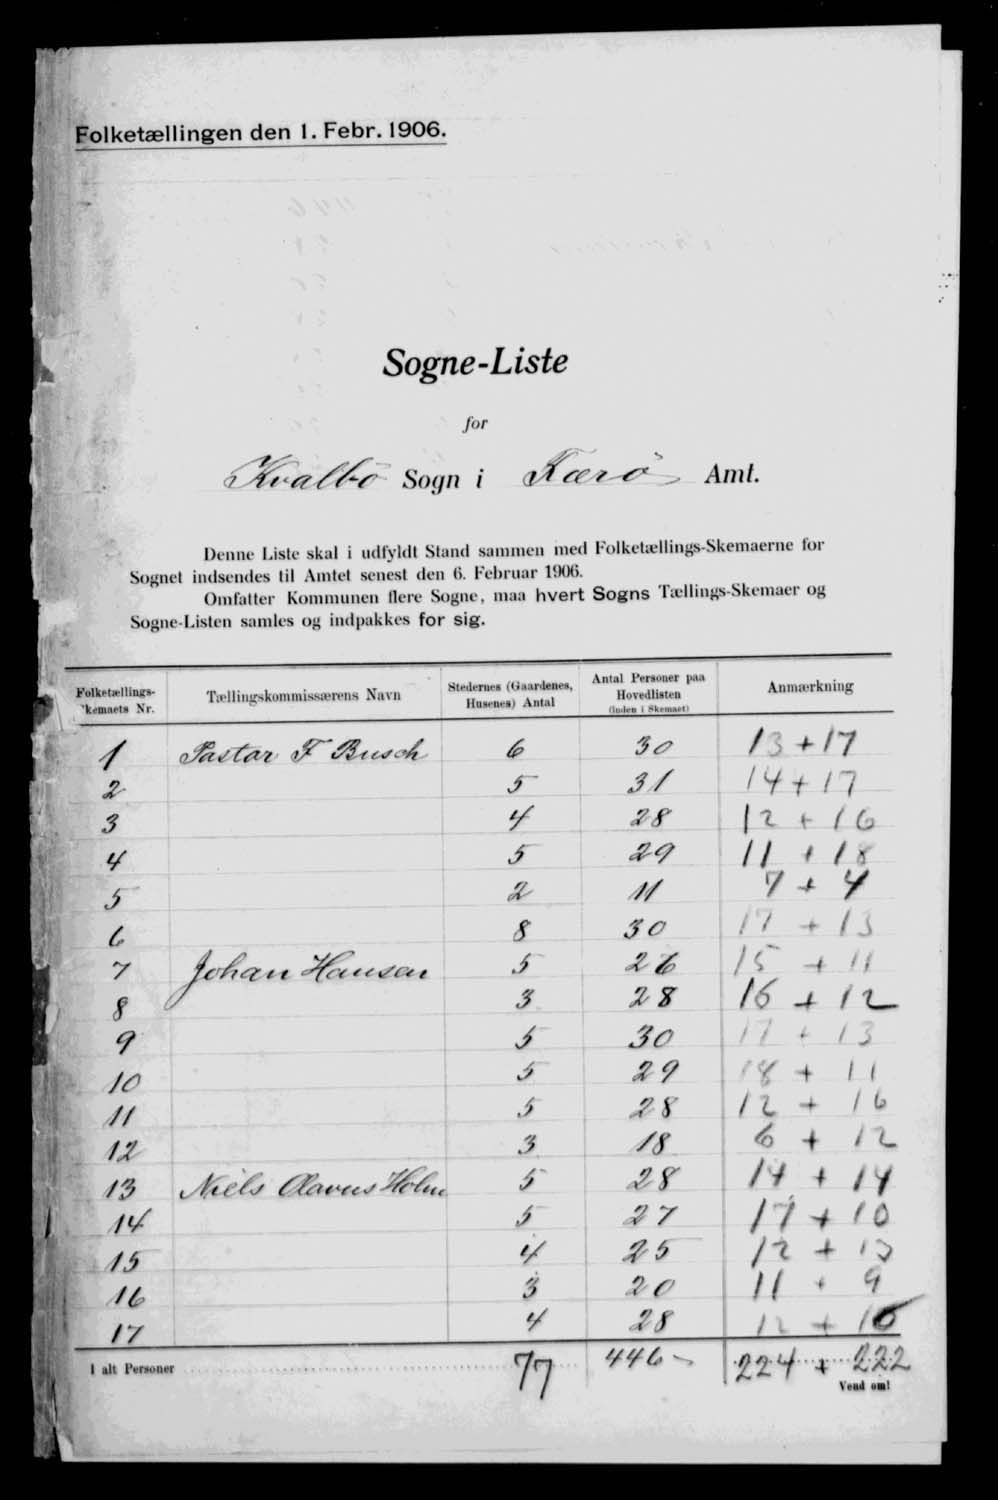 Folketællingen den 1. Febr. 1906.
Sogne-Liste
for
Kvalbö Sogn i Færö Amt.
Denne Liste skal i udfyldt Stand sammen med Folketællings-Skemaerne for
Sognet indsendes til Amtet senest den 6. Februar 1906.
Omfatter Kommunen flere Sogne, maa hvert Sogns Tællings-Skemaer og
Sogne-Listen samles og indpakkes for sig.
Folketællings-
kemaets Nr.
Tællingskommissærens Navn
Stedernes (Gaardenes,
Husenes) Antal
Antal Personer paa
Hovedlisten
(Inden i Skemaet)
Anmærkning
1 Pastor F Busch 6 30 13 + 17
2 5 31 14 + 17
3 4 28 12 + 16
4 5 29 11 + 18
5 2 11 7 + 4
6 8 30 17 + 13
7 Johan Hansen 5 26 15 + 11
8 3 28 16 + 12
9 5 30 17 + 13
10 5 29 18 + 11
11 5 28 12 + 16
12 3 18 6 + 12
13 Niels Olavus Holm 5 28 14 + 14
14 5 27 17 + 10
15 4 25 12 + 13
16 3 20 11 + 9
17 4 28 12 + 16
I alt Personer 77 446 224 + 222
Vend om!